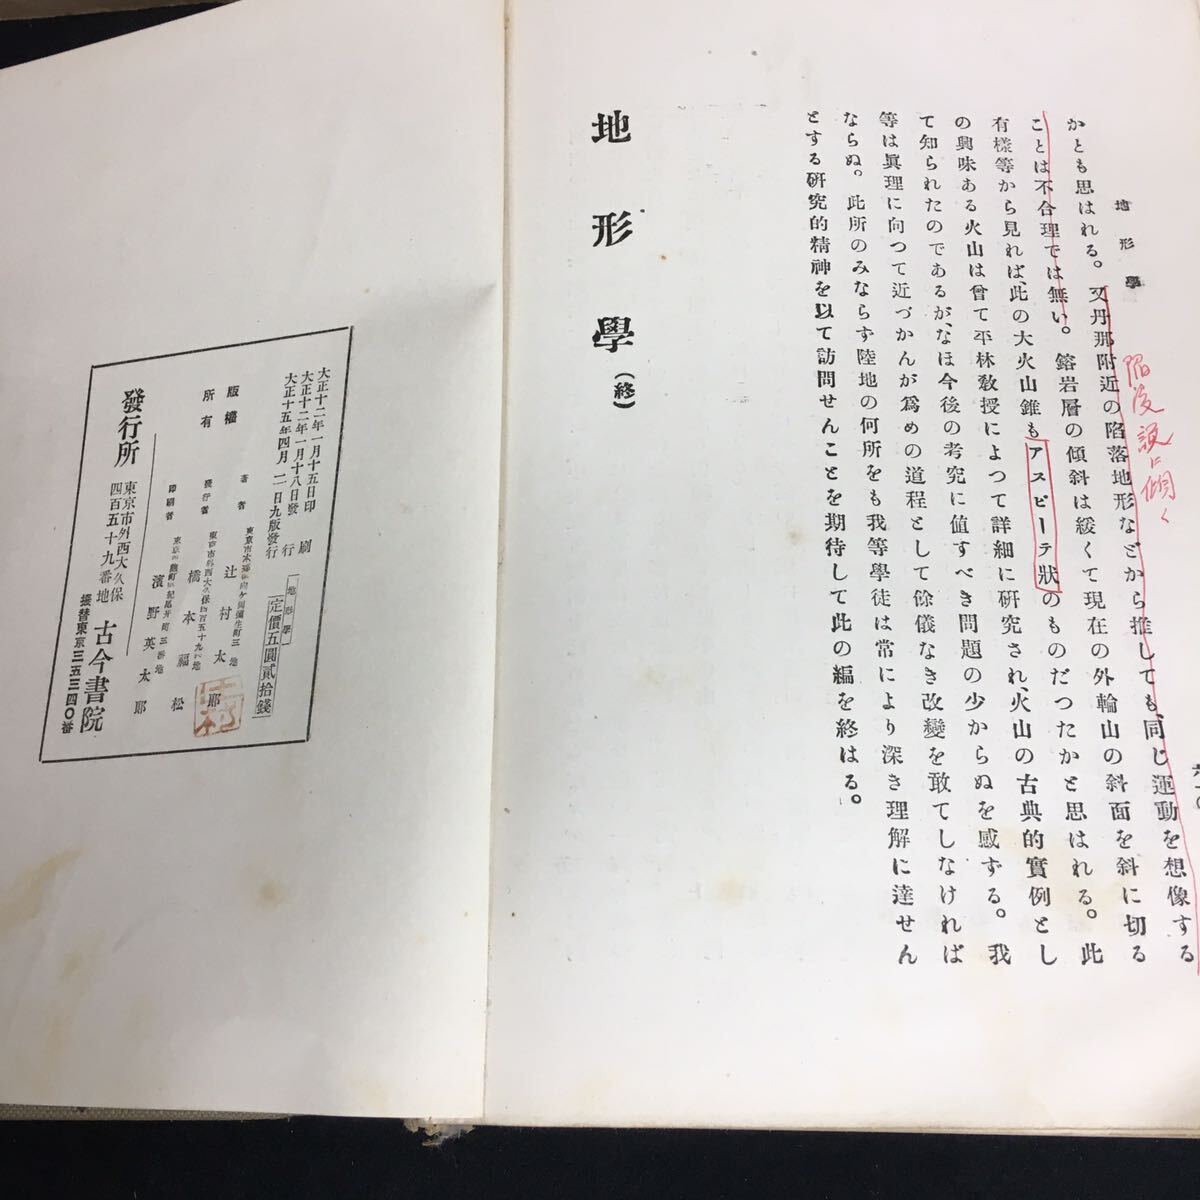 地形學
六一〇
かとも思はれる。又丹那附近の陷落地形などから推しても、同じ運動を想像する
ことは不合理では無い。鎔岩層の傾斜は緩くて現在の外輪山の斜面を斜に切る
有樣等から見れば、此の大火山錐もアスピーテ狀のものだつたかと思はれる。此
の興味ある火山は曾て平林敎授によつて詳細に研究され、火山の古典的實例とし
て知られたのであるが、なほ今後の考究に値すべき問題の少からぬを感ずる。我
等は眞理に向つて近づかんが爲めの道程として餘儀なき改變を敢てしなければ
ならぬ。此所のみならず陸地の何所をも我等學徒は常により深き理解に達せん
とする研究的精神を以て訪問せんことを期待して此の編を終はる。
說に傾く
地形學(終)
大正十二年一月十五日印刷
大正十二年一月十八日發行
大正十五年四月二日九版發行
地形學
定價五圓貳拾錢
版權所有
著者
辻村太郞
發行者
東京市外西大久保四百五十九番地
橋本福松
印刷者
濱野英太郞
發行所
東京市外西大久保
四百五十九番地
古今書院
振替東京三五三四〇番